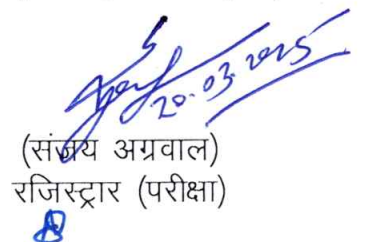 20.03.2025
(संजय अग्रवाल)
रजिस्ट्रार (परीक्षा)